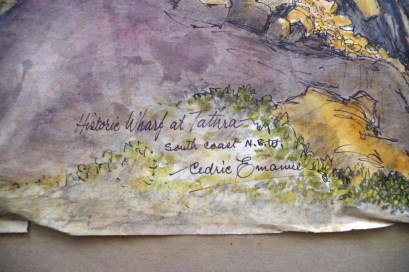 Historic Wharf at Tathra
South coast N.S.W.
Cedric Emanuel